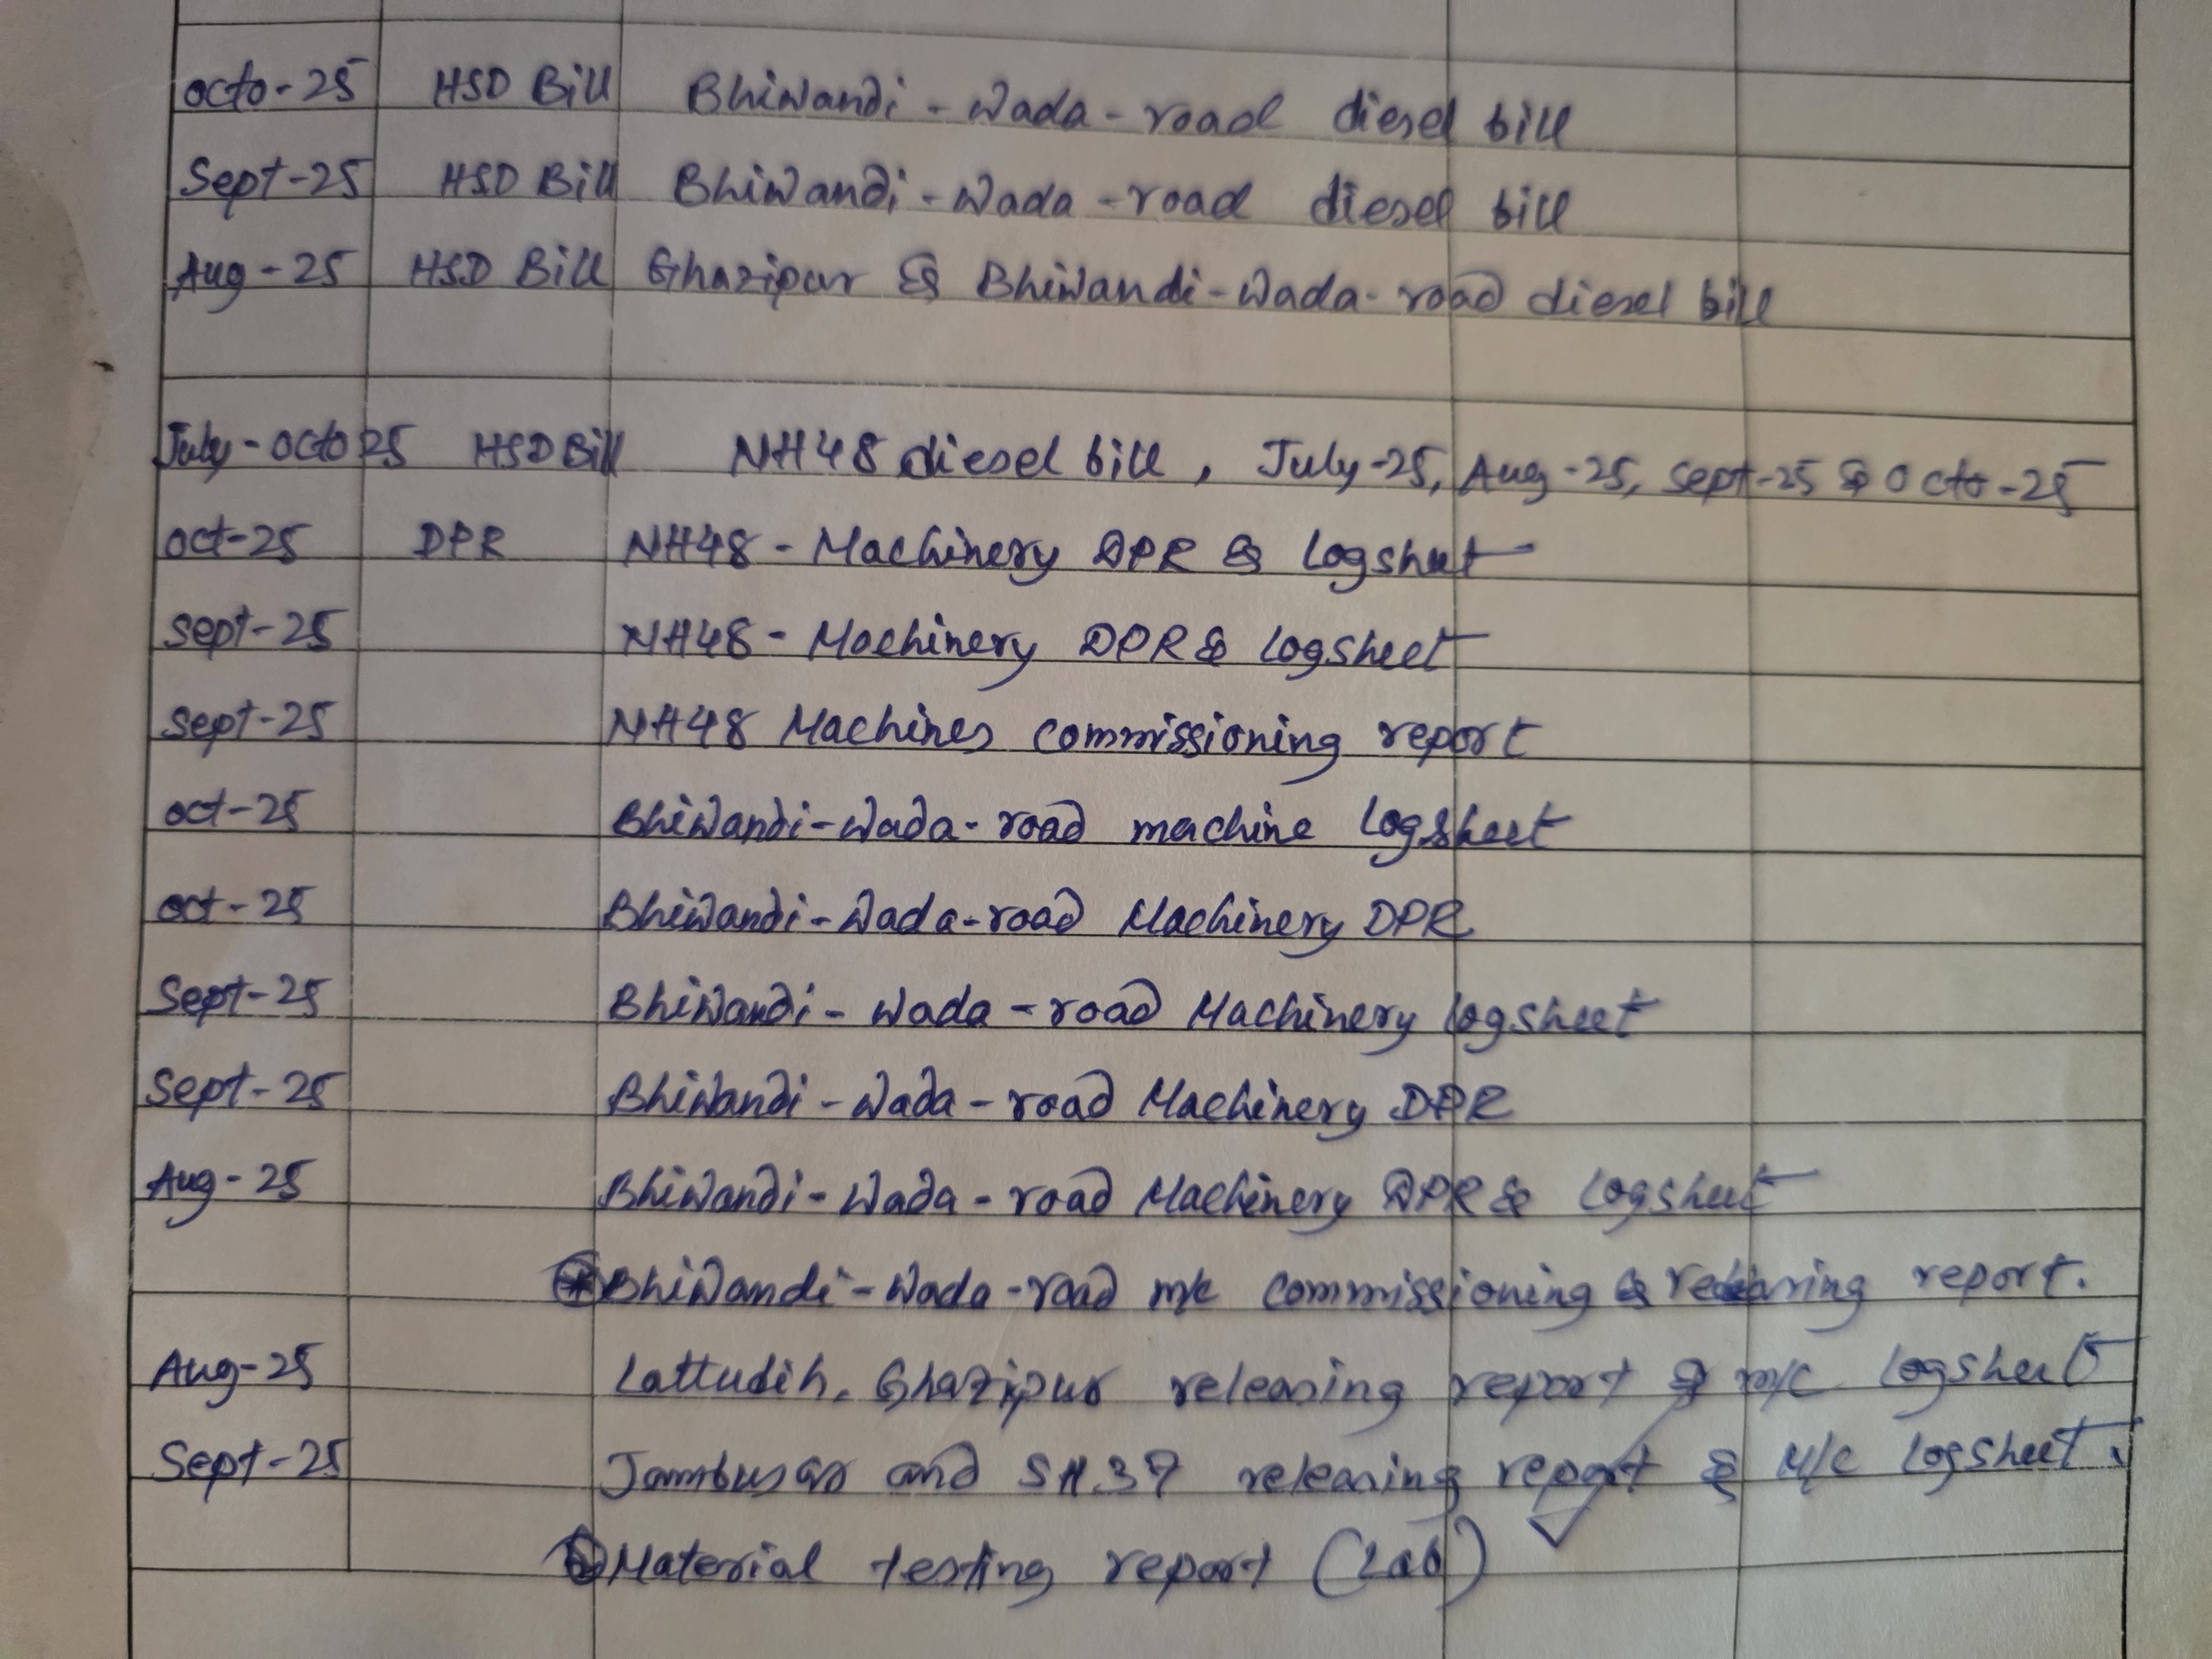 octo-25 HSD Bill Bhiwandi-Wada-road diesel bill
Sept-25 HSD Bill Bhiwandi-Wada-road diesel bill
Aug-25 HSD Bill Ghazipur & Bhiwandi-Wada-road diesel bill
July-octo 25 HSD Bill NH48 diesel bill, July-25, Aug-25, Sept-25 & Octo-25
oct-25 DPR NH48-Machinery DPR & Logsheet
sept-25 NH48-Machinery DPR & Logsheet
sept-25 NH48 Machines commissioning report
oct-25 Bhiwandi-Wada-road machine Logsheet
oct-25 Bhiwandi-Wada-road Machinery DPR
Sept-25 Bhiwandi-Wada-road Machinery logsheet
Sept-25 Bhiwandi-Wada-road Machinery DPR
Aug-25 Bhiwandi-Wada-road Machinery DPR & Logsheet
Bhiwandi-Wada-road m/c commissioning & report.
Aug-25 Lattudih, Ghazipur releasing report & m/c Logsheet
Sept-25 Jambusar and SH.37 releasing report & M/c Logsheet.
Material testing report (Lab)